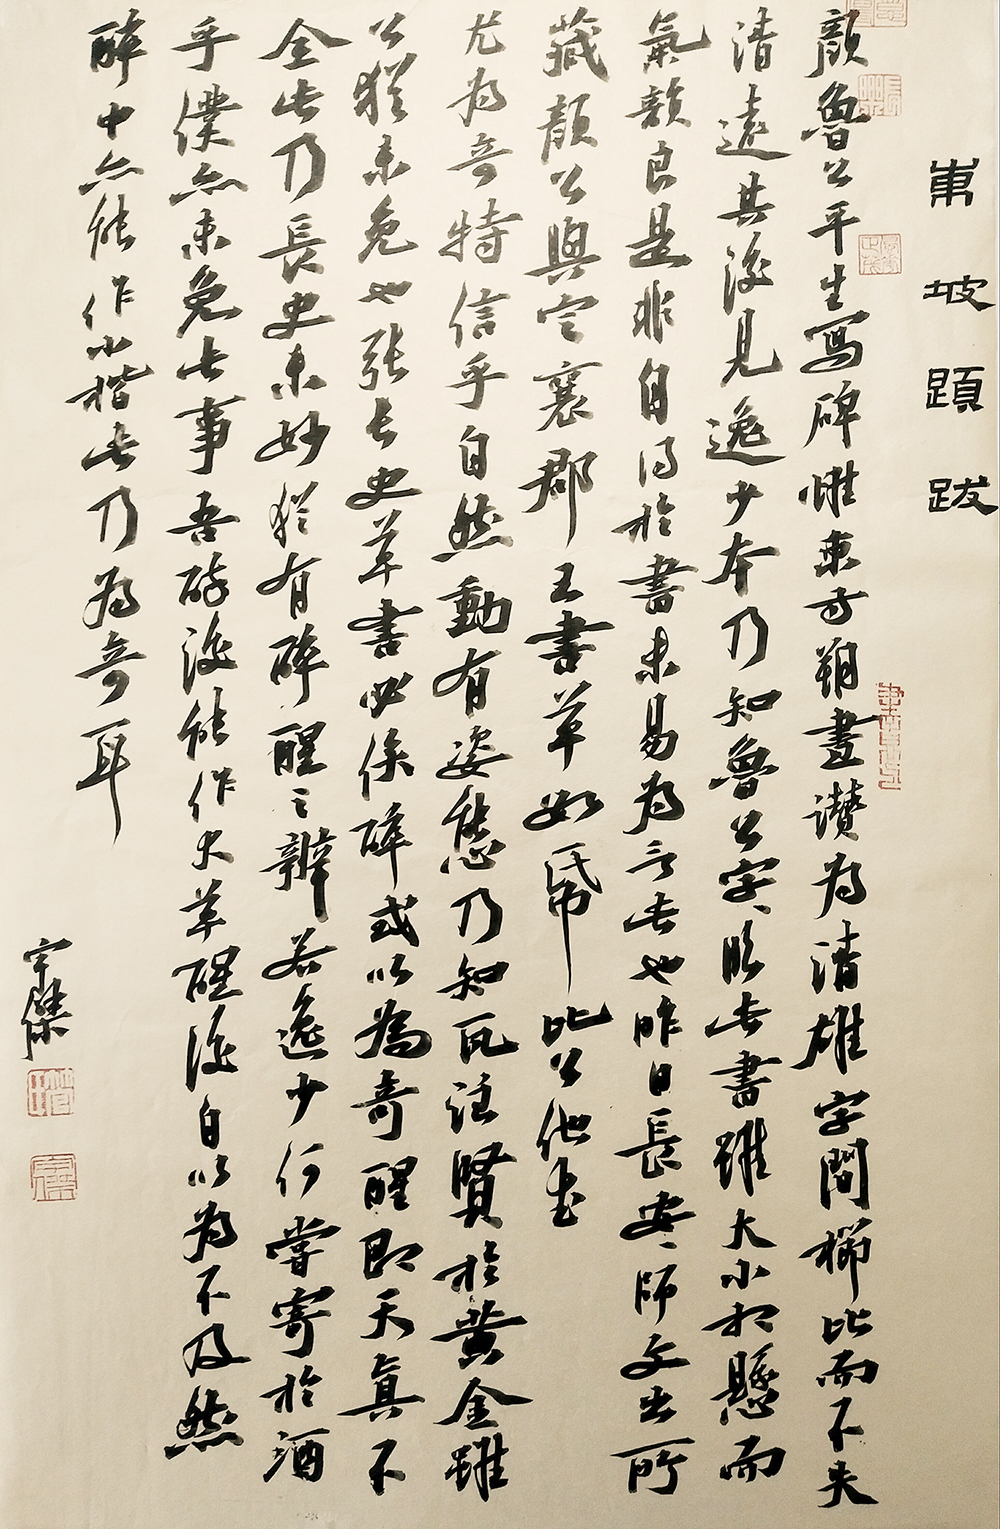 東坡題跋
顏魯公平生寫碑惟東方朔畫讚為清雄字間櫛比而不失
清遠其後見逸少本乃知魯公字、臨此書雖大小相懸而
氣韻良是非自得於書未易為言此也昨日長安、師文出所
藏顏公與定襄郡王書草數帋比公他書
尤為奇特信乎自然動有姿態乃知瓦注賢於黃金雖
公猶未免也張長史草書必俟醉或以為奇醒即天真不
全此乃長史未妙猶有醉醒之辨若逸少何嘗寄於酒
乎僕亦未免此事吾醉後能作大草醒後自以為不及然
醉中亦能作小楷此乃為奇耳
宇傑